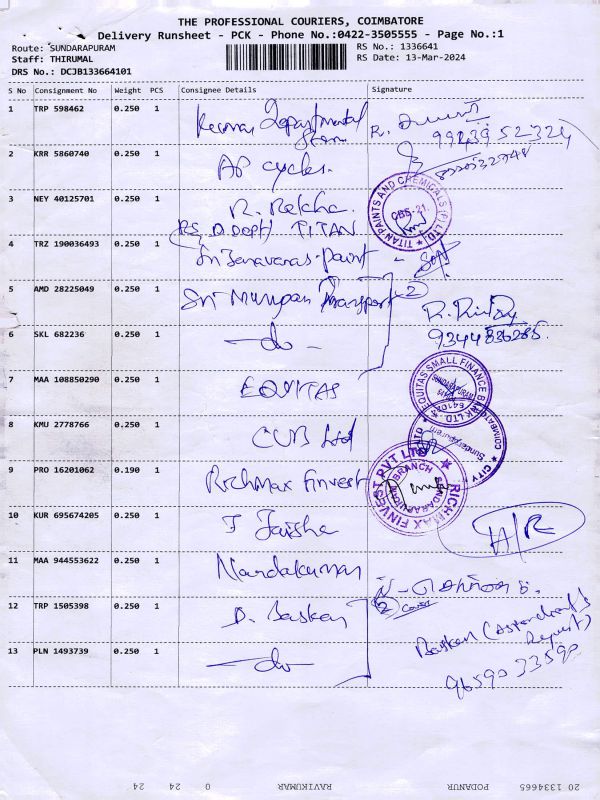 THE PROFESSIONAL COURIERS, COIMBATORE
Delivery Runsheet - PCK - Phone No.:0422-3505555 - Page No.:1
Route: SUNDARAPURAM
RS No.: 1336641
Staff: THIRUMAL
RS Date: 13-Mar-2024
DRS No.: DCJB133664101
S No Consignment No Weight PCS Consignee Details Signature
1 TRP 598462 0.250 1 Departmental
R.
2 KRR 5860740 0.250 1 AP cycles.
3 NEY 40125701 0.250 1 R. Rekha.
TITAN
TITAN PAINTS AND CHEMICALS (P) LTD
CBE-21.
4 TRZ 190036493 0.250 1 Paint
5 AMD 28225049 0.250 1 Sri Murugan Transport 2
6 SKL 682236 0.250 1 - do -
7 MAA 108850290 0.250 1 EQUITAS
EQUITAS SMALL FINANCE BANK LTD
SUNDARAPURAM
8 KMU 2778766 0.250 1 CUB Ltd
CITY
Sunderapuram
COIMBATORE
9 PRO 16201062 0.190 1 Richmax Finvest
RICHMAX FINVEST PVT LTD
SUNDARAPURAM BRANCH
10 KUR 695674205 0.250 1
11 MAA 944553622 0.250 1 Nandakumar
12 TRP 1505398 0.250 1 D. Baskar
2 Cover
Baskar
13 PLN 1493739 0.250 1 - do -
20 1334665 PODANUR RAVIKUMAR 0 24 24